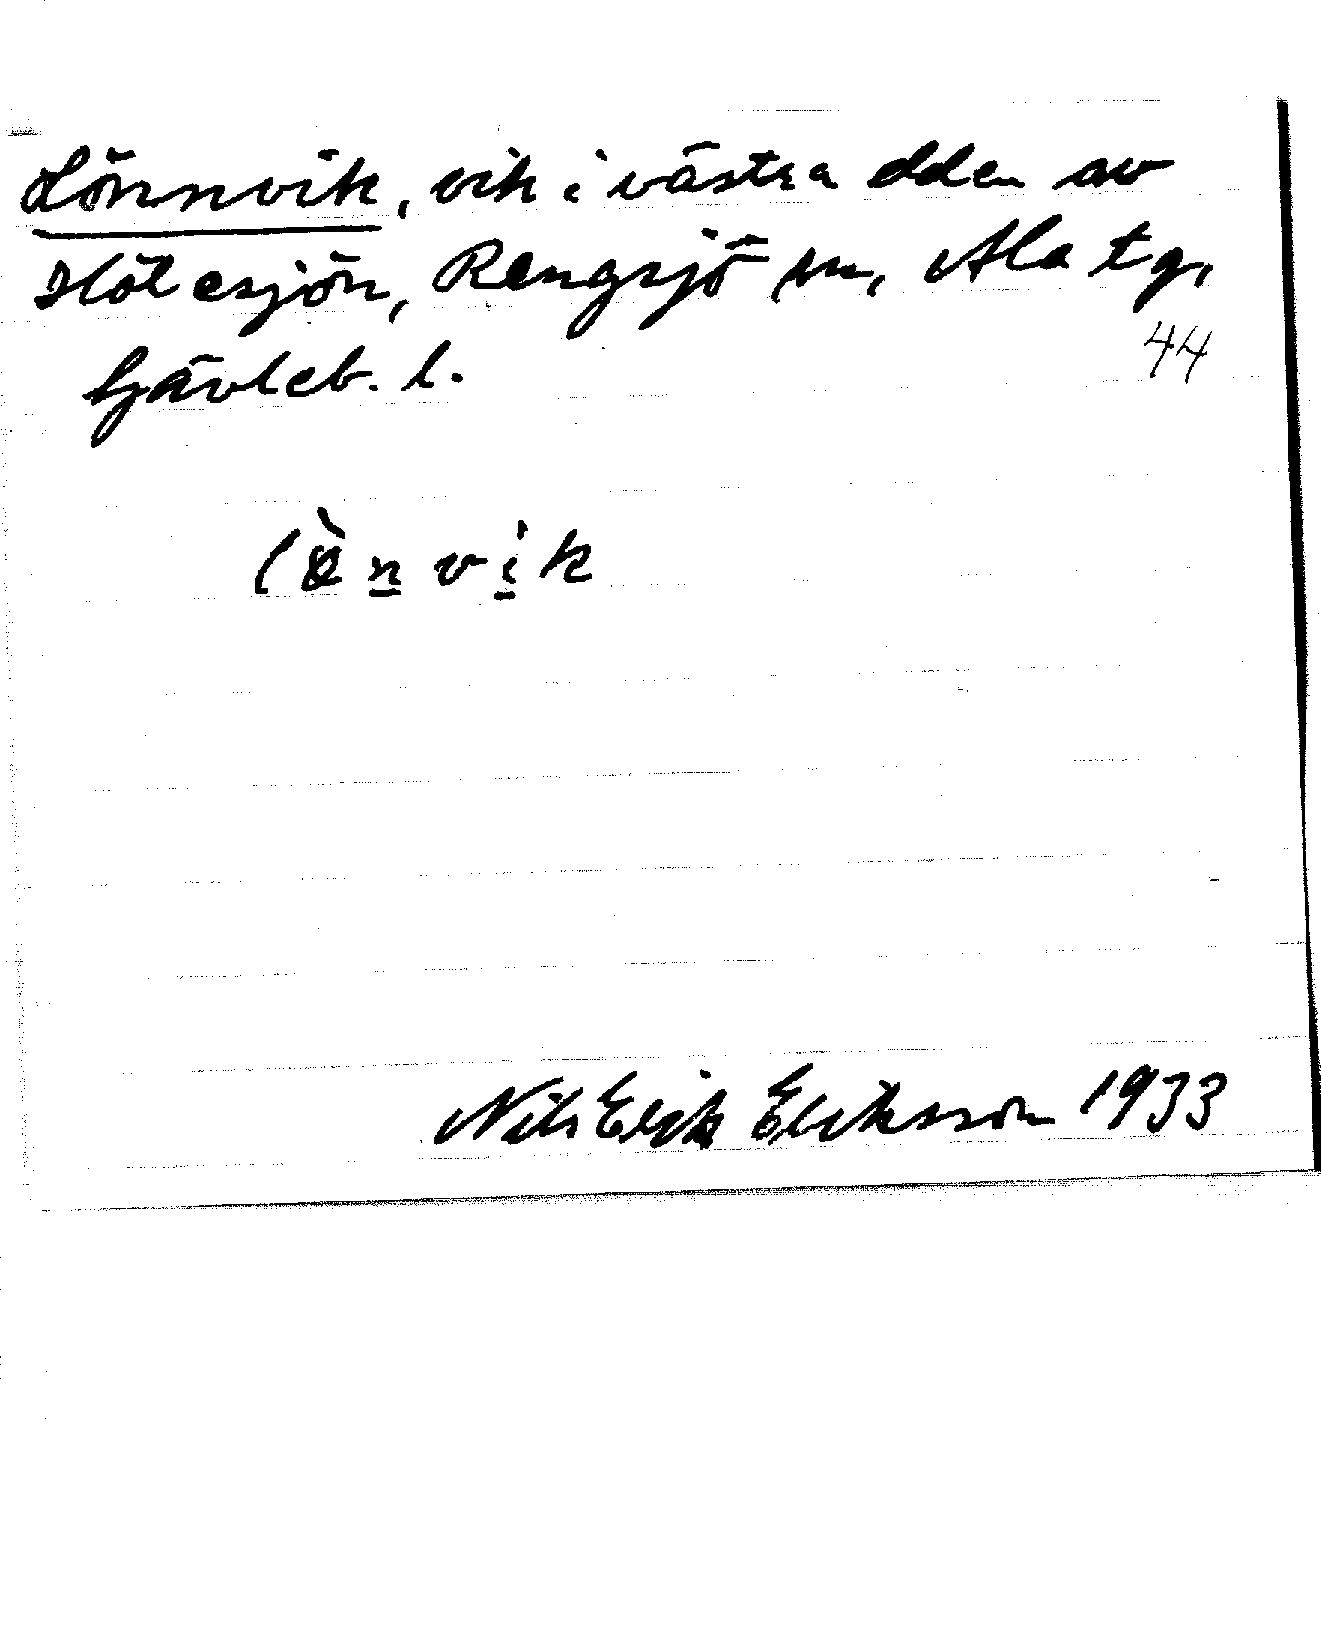 Lönnvik, vik i västra delen av
Hötesjön, Rengsjö sn, Ala tg,
Gävleb. l.
44
lö̀nvik
Nils Erik Eriksson 1933